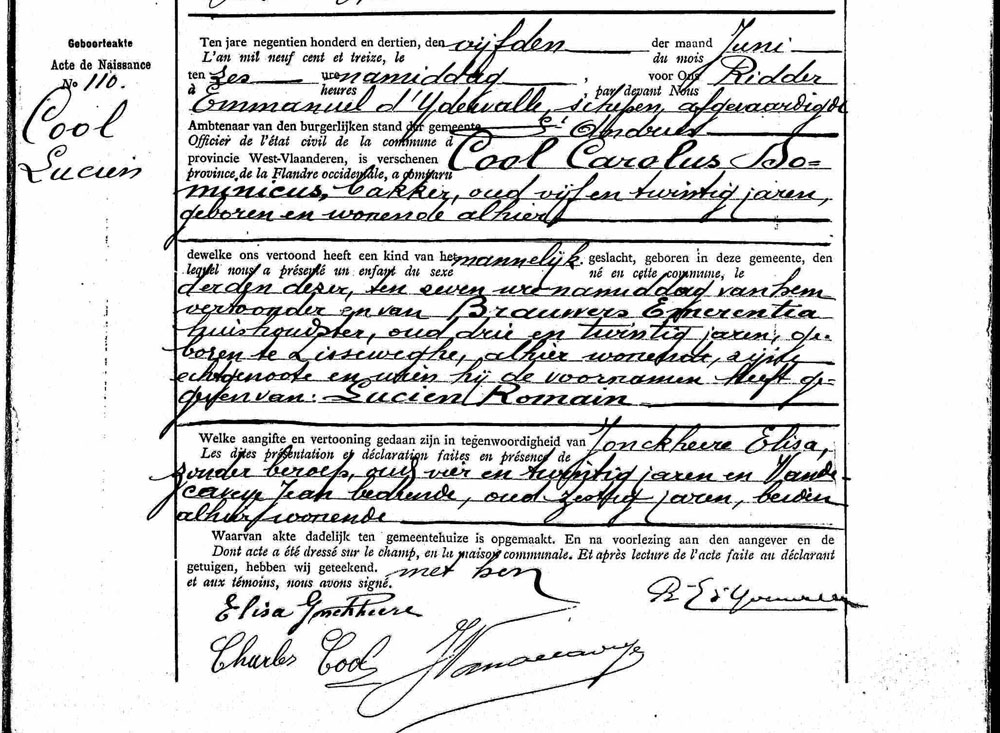 Geboorteakte
Acte de Naissance
No 110.
Cool
Lucien
Ten jare negentien honderd en dertien, den vijfden der maand Juni
L'an mil neuf cent et treize, le du mois
ten zes ure namiddag, voor Ons Ridder
à heures par devant Nous
Emmanuel d'Ydewalle, schepen, afgevaardigde
Ambtenaar van den burgerlijken stand der gemeente St Andries
Officier de l'état civil de la commune d
provincie West-Vlaanderen, is verschenen Cool Carolus Do=
province de la Flandre occidentale, a comparu
minicus, bakker, oud vijf en twintig jaren,
geboren en wonende alhier
dewelke ons vertoond heeft een kind van het mannelijk geslacht, geboren in deze gemeente, den
lequel nous a présenté un enfant du sexe né en cette commune, le
derden dezer, ten zeven ure namiddag van hem
vertoonder en van Brauwers Emerentia
huishoudster, oud drie en twintig jaren, ge-
boren te Lisseweghe, alhier wonende, zijne
echtgenoote en wien hij de voornamen heeft ge-
geven van: Lucien Romain
Welke aangifte en vertooning gedaan zijn in tegenwoordigheid van Jonckheere Elisa,
Les dites présentation et déclaration faites en présence de
zonder beroep, oud vier en twintig jaren en Vande-
Jean bediende, oud zestig jaren, beiden
alhier wonende
Waarvan akte dadelijk ten gemeentehuize is opgemaakt. En na voorlezing aan den aangever en de
Dont acte a été dressé sur le champ, en la maison communale. Et après lecture de l'acte faite au déclarant
getuigen, hebben wij geteekend. met hen
et aux témoins, nous avons signé.
Elisa Jonckheere
Charles Cool